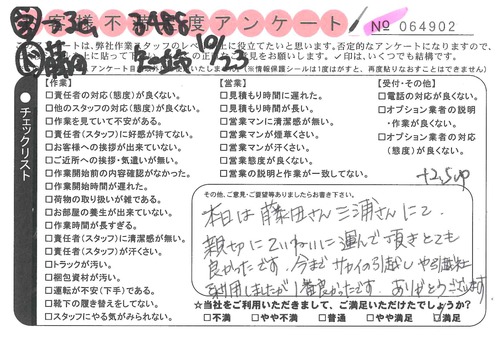 お客様不満足度アンケート
No 064902
10/23
このアンケートは、弊社作業スタッフのレベル向上に役立てたいと思います。否定的なアンケートになりますので、
アンケート自体
(※情報保護シールは1度はがすと、再度貼りなおすことはできません)
●チェックリスト
【作業】
□責任者の対応(態度)が良くない。
□他のスタッフの対応(態度)が良くない。
□作業を見ていて不安がある。
□責任者(スタッフ)に好感が持てない。
□お客様への挨拶が出来ていない。
□ご近所への挨拶・気遣いが無い。
□作業開始前の内容確認がなかった。
□作業開始時間が遅れた。
□荷物の取り扱いが雑である。
□お部屋の養生が出来ていない。
□作業時間が長すぎる。
□責任者(スタッフ)に清潔感が無い。
□責任者(スタッフ)が汗くさい。
□トラックが汚い。
□梱包資材が汚い。
□運転が不安(下手)である。
□靴下の履き替えをしてない。
□スタッフにやる気がみられない。
【営業】
□見積もり時間に遅れた。
□見積もり時間が長い。
□営業マンに清潔感が無い。
□営業マンが煙草くさい。
□営業マンが汗くさい。
□営業態度が良くない。
□営業の説明と作業が一致してない。
【受付・その他】
□電話の対応が良くない。
□オプション業者の説明
・作業が良くない。
□オプション業者の対応
(態度)が良くない。
その他、ご意見・ご要望等ありましたらお書き下さい。
本日は藤田さん三浦さんにて、
親切にていねいに運んで頂きとても
良かったです。今までサカイの引越しや引越社
を利用しましたが1番良かったです。ありがとうございます
☆当社をご利用いただきまして、ご満足いただけたでしょうか?
□不満 □やや不満 □普通 □やや満足 □満足